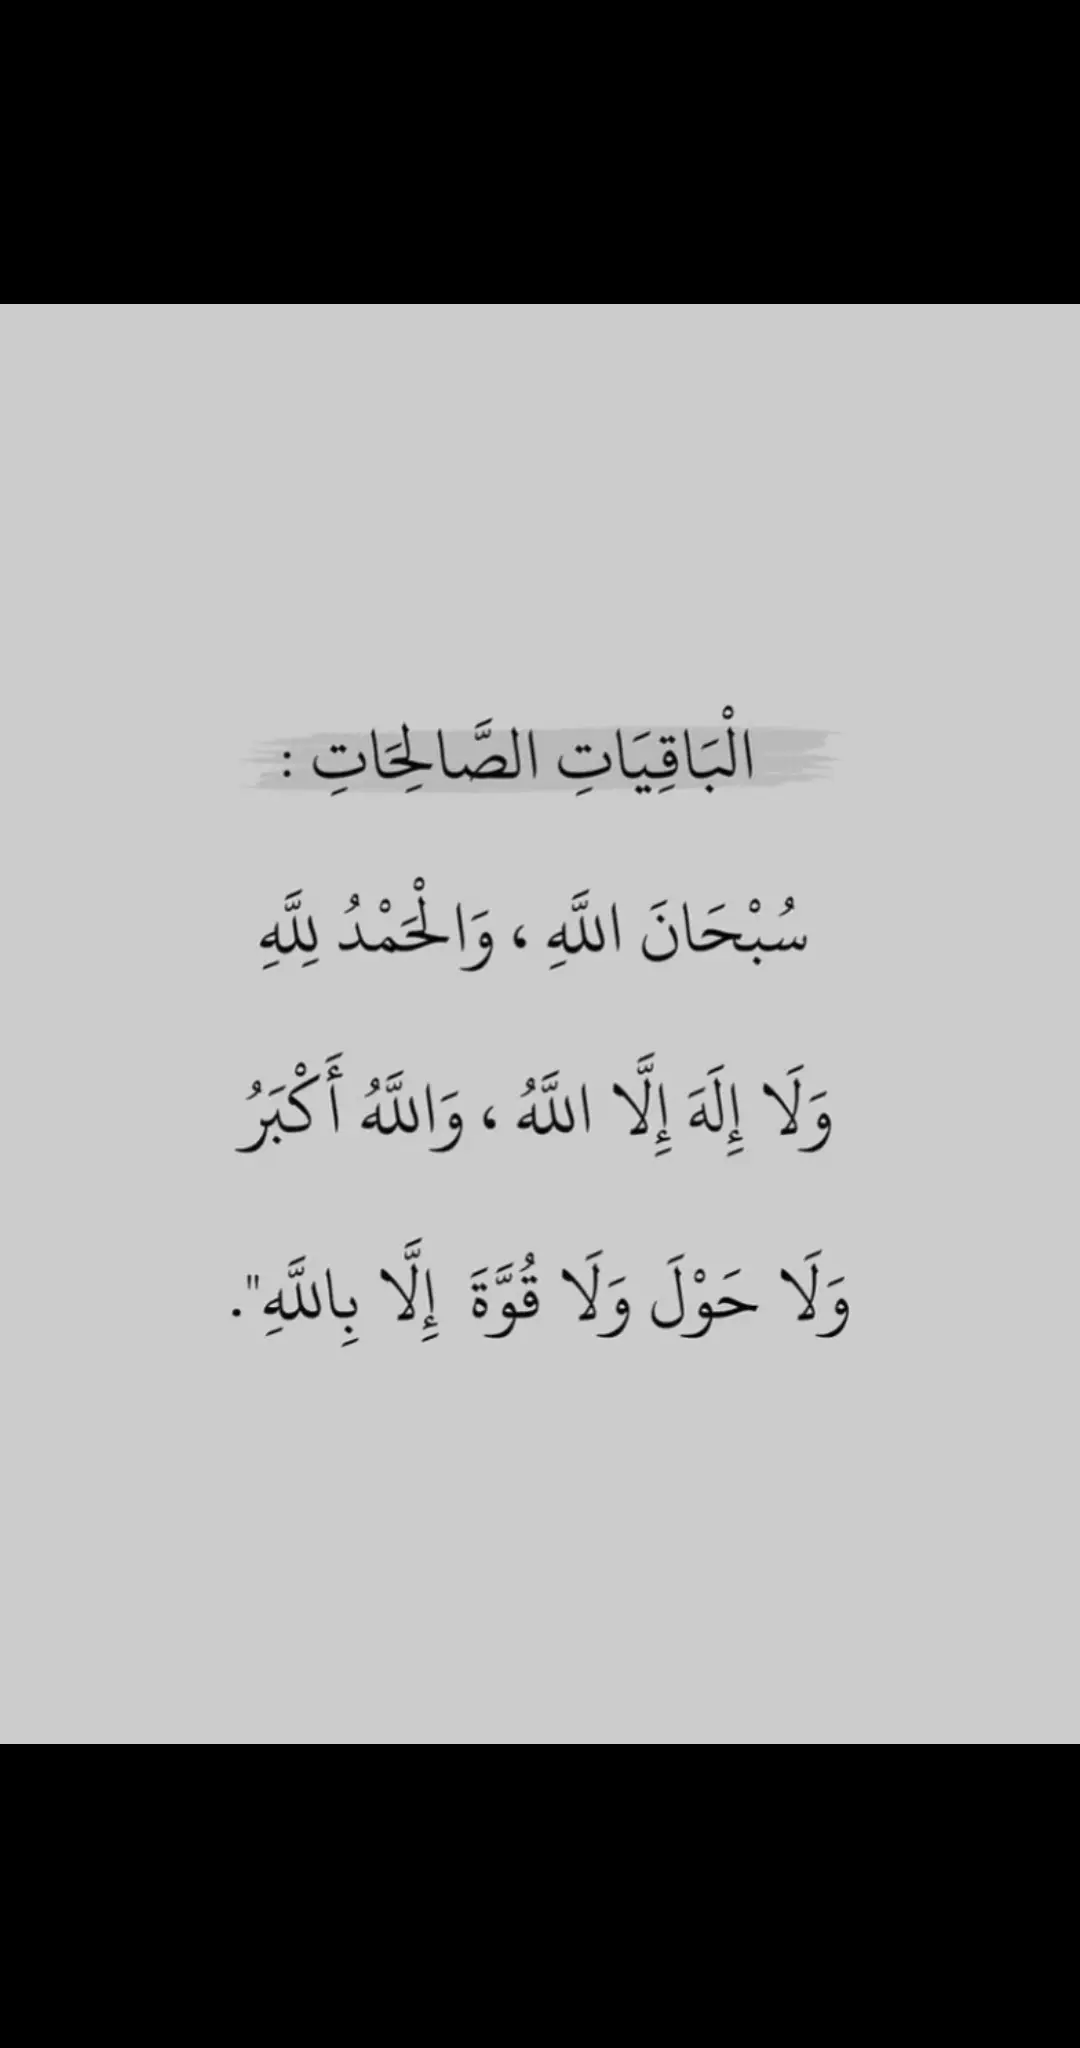 الْبَاقِيَاتِ الصَّالِحَاتِ :
سُبْحَانَ اللَّهِ ، وَالْحَمْدُ لِلَّهِ
وَلَا إِلَهَ إِلَّا اللَّهُ ، وَاللَّهُ أَكْبَرُ
وَلَا حَوْلَ وَلَا قُوَّةَ إِلَّا بِاللَّهِ".